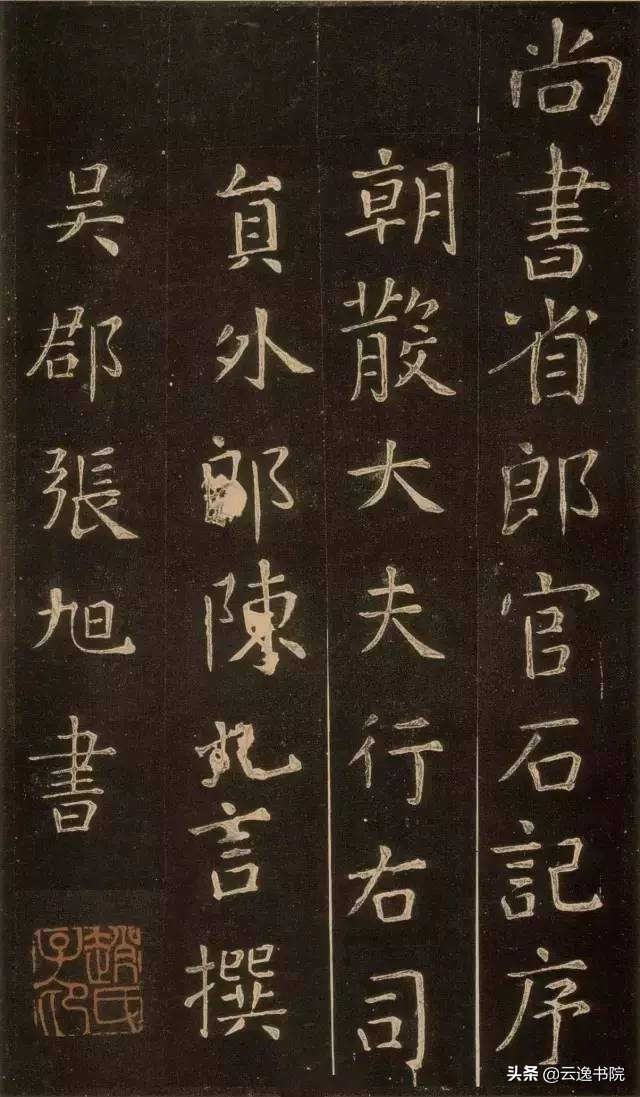 尚書省郎官石記序
朝散大夫行右司
貟外郎陳九言撰
吴郡張旭書
趙氏子昂
头条 @云逸书院